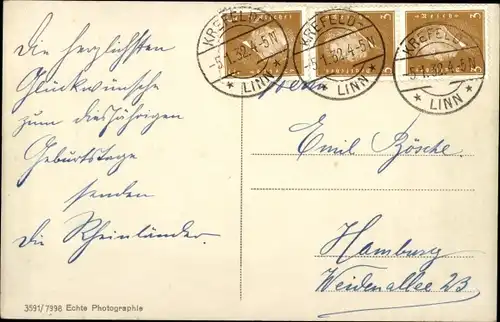 Die herzlichsten
Glückwünsche
zum diesjährigen
Geburtstage
senden
Die Rheinländer.
3591/7998 Echte Photographie
KREFELD-
-5.1.32.4-5N
* LINN *
KREFELD-
-5.1.32.4-5N
* LINN *
KREFELD-
-5.1.32.4-5N
* LINN *
Herrn
Emil Bösche.
Hamburg
Weidenallee 23